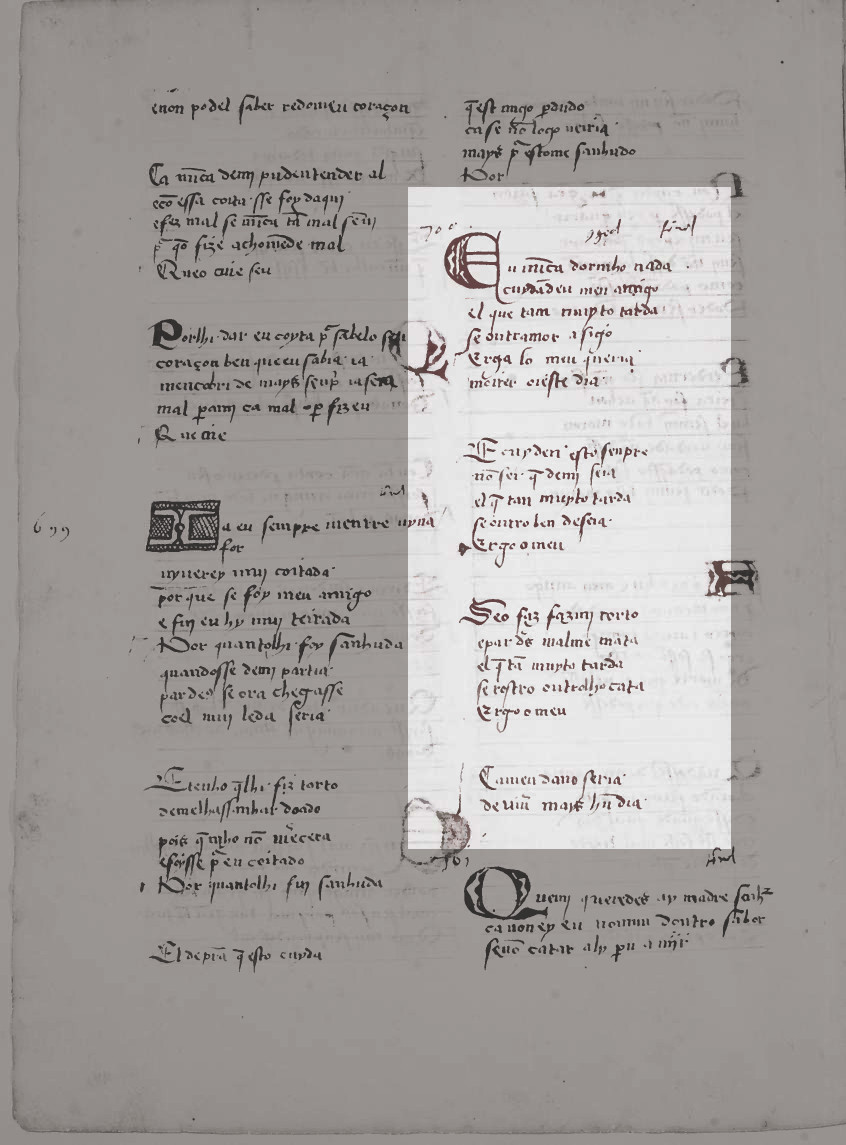 enon podel saber redomeu coraçon
Ca nũca demj pudentender al
ecõ essa coita sse foy daqui
efez mal se nũca tã mal senij
fize achomede mal
Queo cuie seu
Porlhi dar eu coyta p̃ sabelo
coraçon ben queeu sabia ia
mencobri de mays senp̃ iasera
mal parmi ca mal fizeu
Que cuie
699
Ia eu sempre mentre uyua
for
uyuerey muj coitada
por que se foy meu amigo
e fuj eu hy muj errada
Por quantolhi foy sanhuda
quandosse demj partia
pardes se ora chegasse
coel muj leda seria
E tenho q̃lhi fiz torto
demelhassanhar doado
pois q̃ mho nõ mecera
efoysse p̃ eu coitado
Por quantolhi fuj sanhuda
El depram q̃ esto cuyda
q̃est migo pdudo
ca se nõ logo ueiria
mays p̃ estome sanhudo
Por
700
Eu nũca dormho nada
cuydãdeu meu amigo
el que tam muyto tarda
se outramor a sigo
Ergo lo meu queria
morrer oieste dia
E cuydeu esto senpre
nõ sei q̃ demj seia
el q̃ tan muyto tarda
se outro ben deseia
Ergo o meu
Seo faz fazmj torto
epar ds malme mata
el q̃ tã muyto tarda
se rostro outrolho cata
Ergo o meu
Ca meu dano seria
de uiu mays hũ dia
701
Quem queredes ay madre
ca non ey eu nomun doutro sabor
senõ catar aly